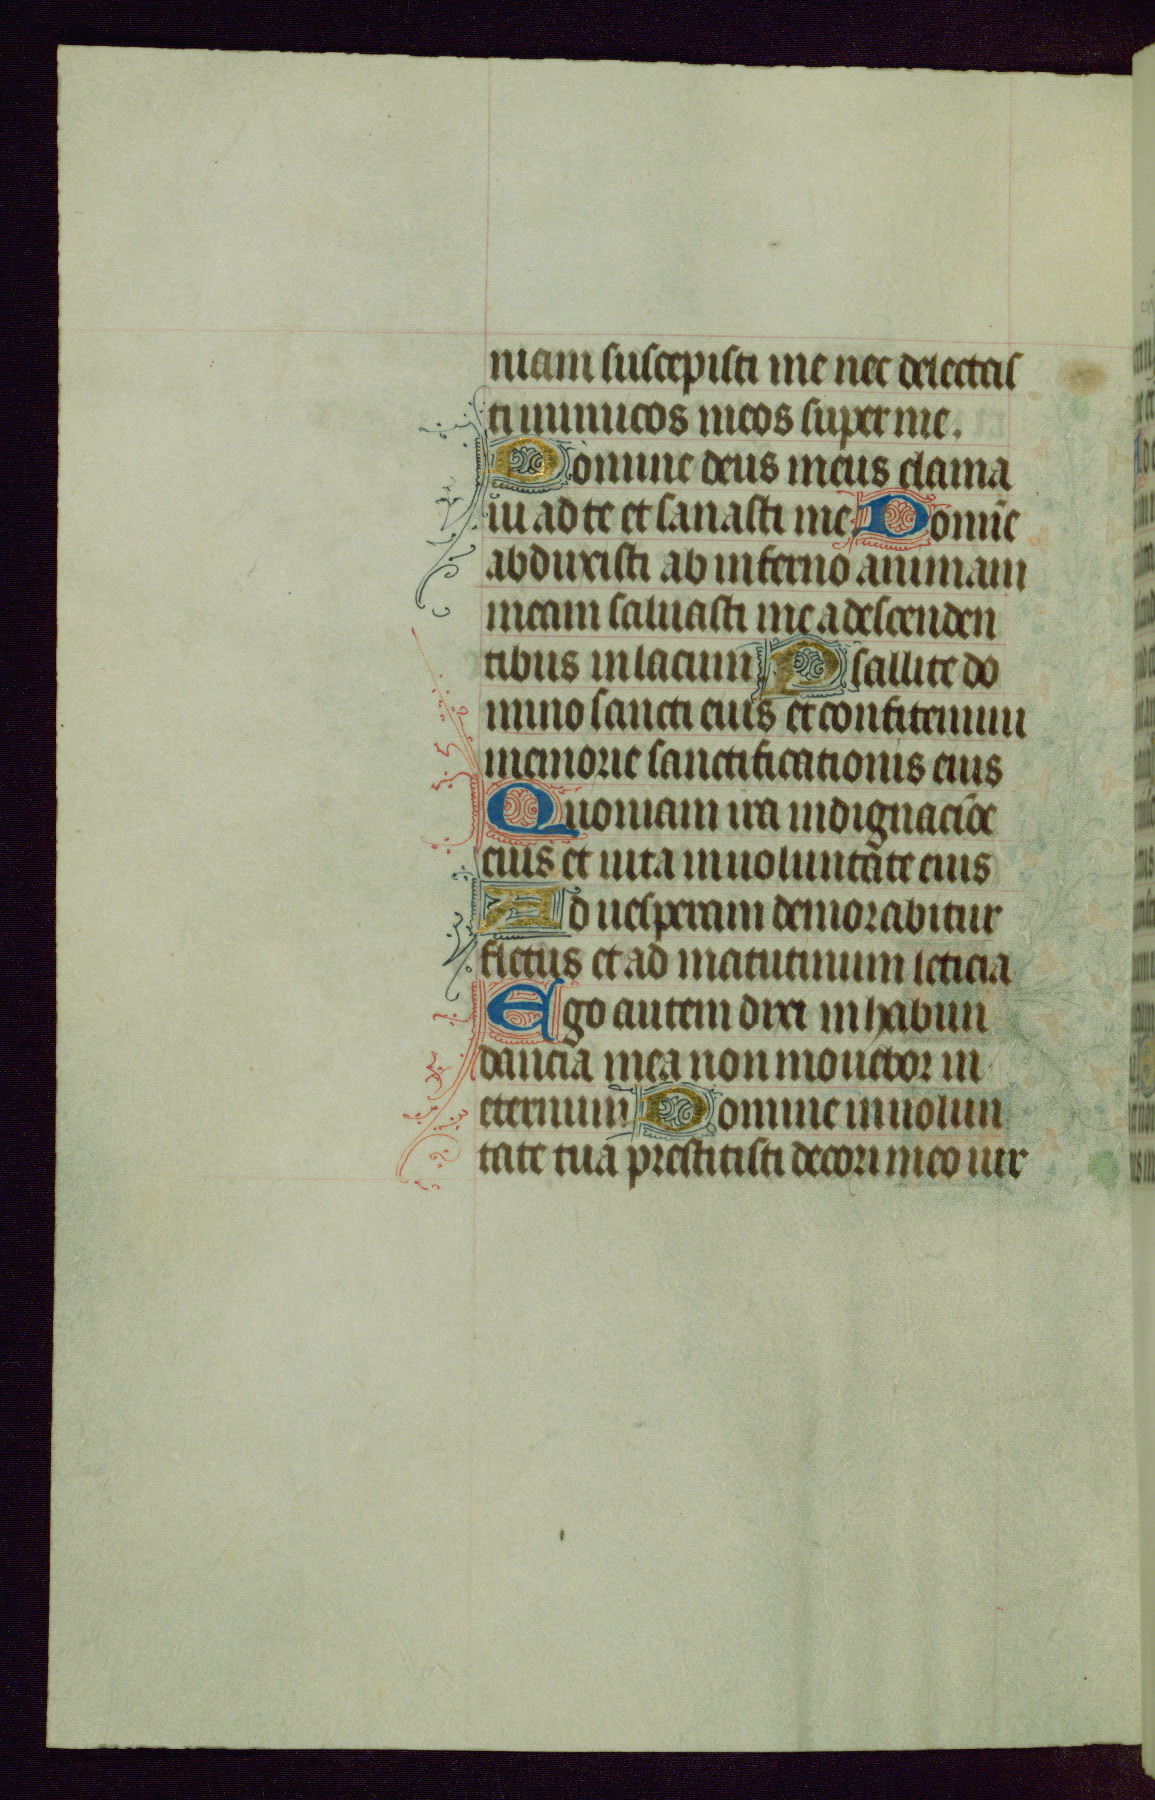 niam suscepisti me nec delectas
ti inimicos meos super me.
Domine deus meus clama
ui ad te et sanasti me Domīe
abduxisti ab inferno animam
meam saluasti me a descenden
tibus in lacum Psallite do
mino sancti eius et confitemini
memorie sanctificationis eius
Quoniam ira indignaciōe
eius et uita in uoluntāte eius
Ad uesperam demorabitur
fletus et ad matutinum leticia
Ego autem dixi in habun
dancia mea non mouebor in
eternum Domine in uolun
tate tua prestitisti decori meo uir